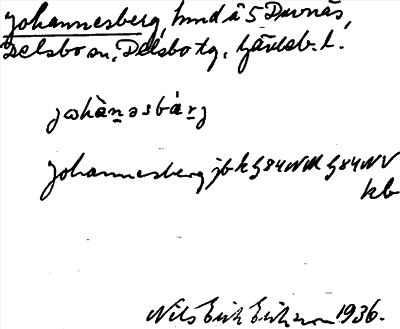 Johannesberg, hmd å 5 Durnäs,
Delsbo sn, Delsbo tg, Gävleb. l.
johànəsbárj
Johannesberg jb k G84NM G84NV
kb
Nils Erik Eriksson 1936.